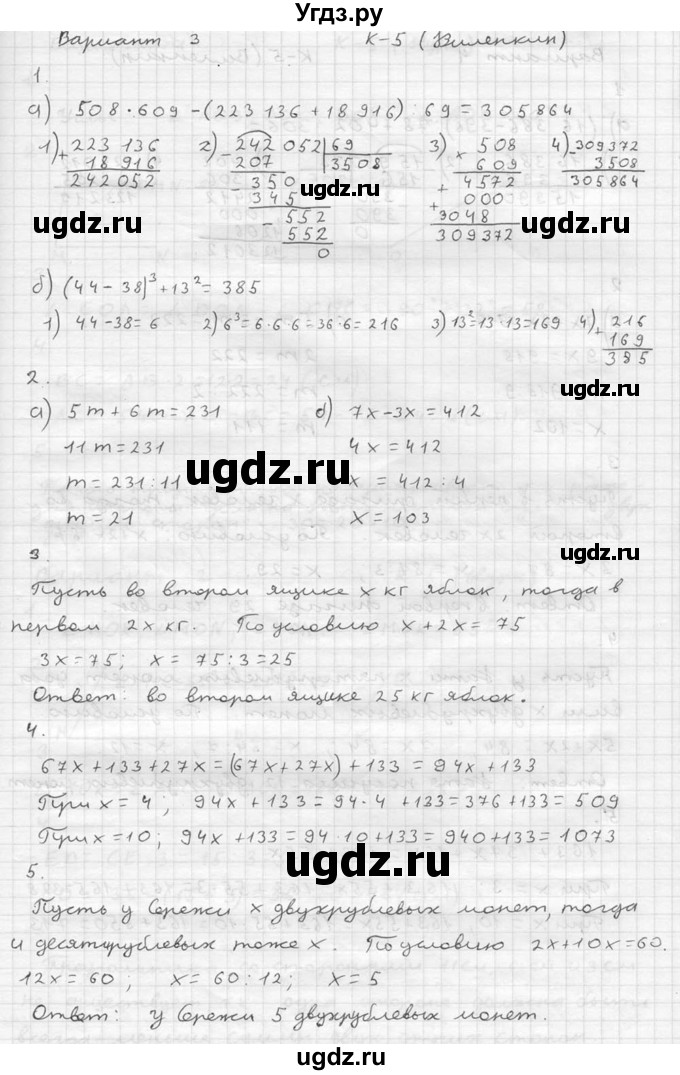 Угдз.ру
Вариант 3 К-5 (Виленкин)
1.
а) 508·609-(223 136+18 916):69=305864
1) 223 136 2) 242 052 69 3) 508 4) 309372
+ 18 916 - 207 3508 × 609 - 3508
242 052 350 4572 305864
- 345 + 000
552 + 3048
- 552 309372
0
ugdz.ru ugdz.ru ugdz.ru
б) (44-38)³+13²=385
1) 44-38=6 2) 6³=6·6·6=36·6=216 3) 13²=13·13=169 4) 216
+ 169
385
2.
ugdz.ru
а) 5m+6m=231 б) 7x-3x=412
11m=231 4x=412
m=231:11 x=412:4
ugdz.ru
m=21 x=103
3.
Пусть во втором ящике x кг яблок, тогда в
первом 2x кг. По условию x+2x=75
3x=75; x=75:3=25
ugdz.ru ugdz.ru
Ответ: во втором ящике 25 кг яблок.
4.
67x+133+27x=(67x+27x)+133=94x+133
При x=4; 94x+133=94·4+133=376+133=509
При x=10; 94x+133=94·10+133=940+133=1073
ugdz.ru
5.
Пусть у Сережи x двухрублевых монет, тогда
и десятирублевых тоже x. По условию 2x+10x=60.
12x=60; x=60:12; x=5
Ответ: у Сережи 5 двухрублевых монет.
ugdz.ru ugdz.ru
ugdz.ru